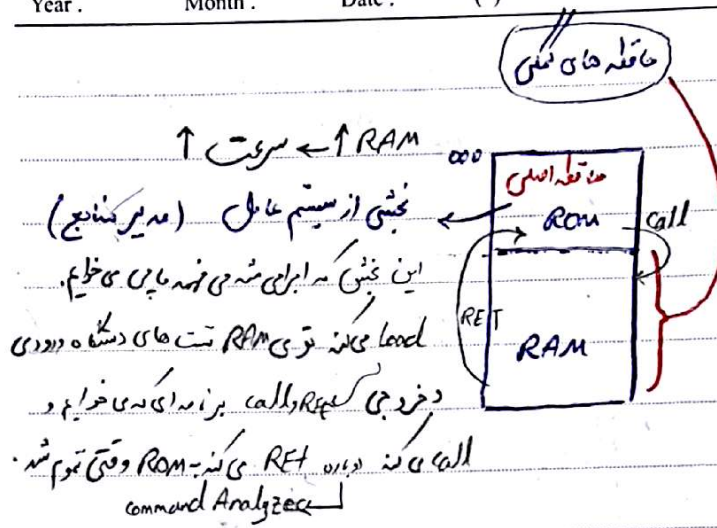 Year . Month . Date . ( )
حافظه های کمکی
RAM ↑ ← سرعت ↑
000
حافظه اصلی
ROM
call
بخشی از سیستم عامل (مدیر منابع)
این بخش که اجرا می شه می فهمه ما چی می خوایم.
RET
RAM
load می کند توی RAM تست های دستگاه ورودی
و خروجی call برنامه ای که می خوایم و
call می کند دوباره RET می کند به ROM وقتی تموم شد.
command Analyzer